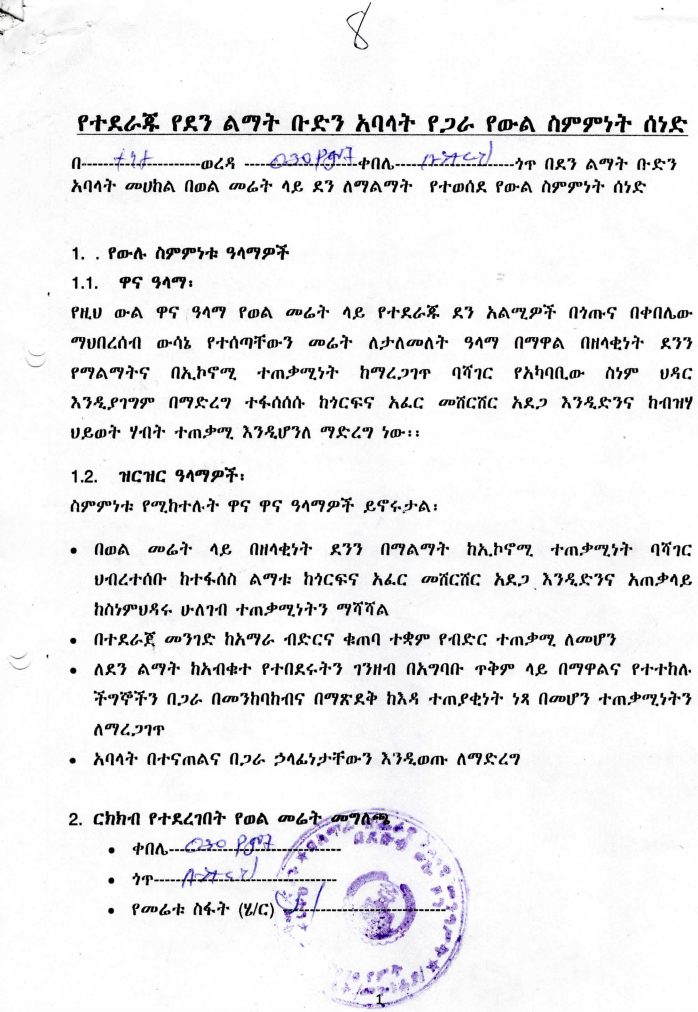 8
የተደራጁ የደን ልማት ቡድን አባላት የጋራ የውል ስምምነት ሰነድ
በ------------------------ወረዳ ------------------------ቀበሌ------------------------ጎጥ በደን ልማት ቡድን
አባላት መሀከል በወል መሬት ላይ ደን ለማልማት የተወሰደ የውል ስምምነት ሰነድ
1. . የውሉ ስምምነቱ ዓላማዎች
1.1. ዋና ዓላማ፡
የዚህ ውል ዋና ዓላማ የወል መሬት ላይ የተደራጁ ደን አልሚዎች በጎጡና በቀበሌው
ማህበረሰብ ውሳኔ የተሰጣቸውን መሬት ለታለመለት ዓላማ በማዋል በዘላቂነት ደንን
የማልማትና በኢኮኖሚ ተጠቃሚነት ከማረጋገጥ ባሻገር የአካባቢው ስነም ህዳር
እንዲያገግም በማድረግ ተፋሰሰሱ ከጎርፍና አፈር መሸርሸር አደጋ እንዲድንና ከብዝሃ
ህይወት ሃብት ተጠቃሚ እንዲሆንለ ማድረግ ነው፡፡
1.2. ዝርዝር ዓላማዎች፡
ስምምነቱ የሚከተሉት ዋና ዋና ዓላማዎች ይኖሩታል፡
• በወል መሬት ላይ በዘላቂነት ደንን በማልማት ከኢኮኖሚ ተጠቃሚነት ባሻገር
ህብረተሰቡ ከተፋሰስ ልማቱ ከጎርፍና አፈር መሸርሸር አደጋ እንዲድንና አጠቃላይ
ከስነምህዳሩ ሁለገብ ተጠቃሚነትን ማሻሻል
• በተደራጀ መንገድ ከአማራ ብድርና ቁጠባ ተቋም የብድር ተጠቃሚ ለመሆን
• ለደን ልማት ከአብቁተ የተበደሩትን ገንዘብ በአግባቡ ጥቅም ላይ በማዋልና የተተከሉ
ችግኞችን በጋራ በመንከባከብና በማጽደቅ ከእዳ ተጠያቂነት ነጻ በመሆን ተጠቃሚነትን
ለማረጋገጥ
• አባላት በተናጠልና በጋራ ኃላፊነታቸውን እንዲወጡ ለማድረግ
2. ርክክብ የተደረገበት የወል መሬት መግለጫ
• ቀበሌ------------------------
• ጎጥ------------------------
• የመሬቱ ስፋት (ሄ/ር) ------------------------
1